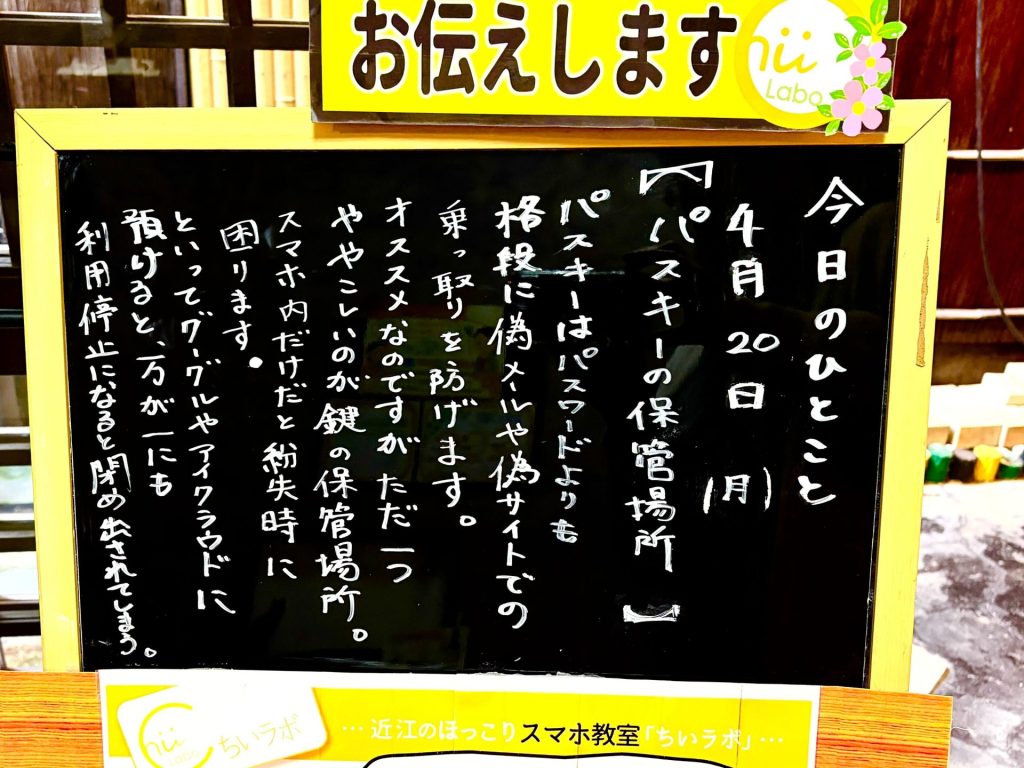 お伝えします
nii
Labo
今日のひとこと
4月20日(月)
【パスキーの保管場所】
パスキーはパスワードよりも
格段に偽メールや偽サイトでの
乗っ取りを防げます。
オススメなのですがただ一つ
ややこしいのが鍵の保管場所。
スマホ内だけだと紛失時に
困ります。
といってグーグルやアイクラウドに
預けると、万が一にも
利用停止になると閉め出されてしまう。
nii
Labo
ちいラボ
…近江のほっこりスマホ教室「ちいラボ」…